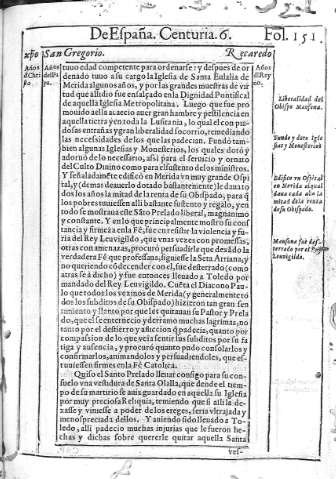 De España. Centuria. 6.
Fol. 151
San Gregorio.
Recaredo
tuuo edad competente para ordenarse: y despues de or
denado tuuo a su cargo la Iglesia de Santa Eulalia de
Merida algunos años, y por las grandes muestras de vir
tud que allidio fue ensalçado en la Dignidad Pontifical
de aquella Iglesia Metropolitana. Luego que fue pro
mouido a ella acaecio auer gran hambre y pestilencia en
aquella tierra y en toda la Lusitania, lo qual el con piado
sas entrañas y gran liberalidad socorrio, remediando
las necesidades de los que las padecian. Fundó tam
bien algunas Iglesias y Monesterios, los quales dotó y
adornó de lo necessario, assi para el seruicio y ornato
del Culto Diuino como para el sustento de los ministros.
Y señaladamẽte edificó en Merida vn muy grande Ospi
tal, y (demas de auerlo dotado bastantemente) le daua to
dos los años la mitad de la renta de su Obispado, para q̃
los pobres tuuiessen alli bastante sustento y regalo, y en
todo se mostraua este Sãto Prelado liberal, magnanimo
y constante. Y en lo que principalmente mostro su cons
tancia y firmeza en la Fé, fue en resistir la violencia y fu
ria del Rey Leuvigildo, que vnas vezes con promessas,
otras con amenazas, procuró persuadirle que dexasse la
verdadera Fé que professaua, siguiesse la Seta Arriana, y
no queriendo cõdecender con el, fue desterrado (como
atras se á dicho) y fue entonces lleuado a Toledo por
mandado del Rey Leuvigildo. Cuẽta el Diacono Pau-
lo que todos los vezinos de Merida (y generalmente to
dos los subditos de su Obispado) hizieron tan gran sen
timiento y llanto por que les quitauan su Pastor y Prela
do, que el se enternecio y derramó muchas lagrimas, no
tanto por el destierro y afliccion q̃ padecia, quanto por
compasion de lo que veia sentir sus subditos por su fa
tiga y ausencia, y procuró quanto pudo consolarlos y
confirmarlos, animandolos y persuadiendoles, que es-
tuuiessen firmes en la Fé Catolica.
Quiso el Santo Prelado lleuar consigo para su con-
suelo vna vestidura de Santa Olalla, que dende el tiem-
po de su marturio se auia guardado en aquella su Iglesia
por muy preciosa Reliquia, temiendo que si alli la de-
xasse y viniesse a poder de los ereges, seria vltrajada y
menospreciada dellos. Y auiendo sido lleuado a To-
ledo, alli padecio muchas injurias que le fueron he-
chas y dichas sobre quererle quitar aquella Santa
ves-
Liberalidad del
Obispo Massona.
Funda y dota Igle
sias y Monesterios
Edifica vn Ospital
en Merida al qual
daua cada año la
mitad de la renta
de su Obispado.
Massona fue des-
terrado por el Rey
Leuvigildo.